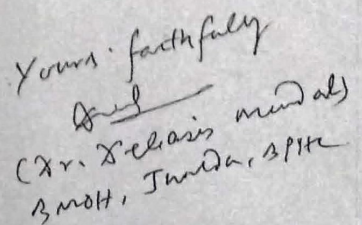 Yours faithfully
(Dr. Debasis Mondal)
BMOH, BPHC